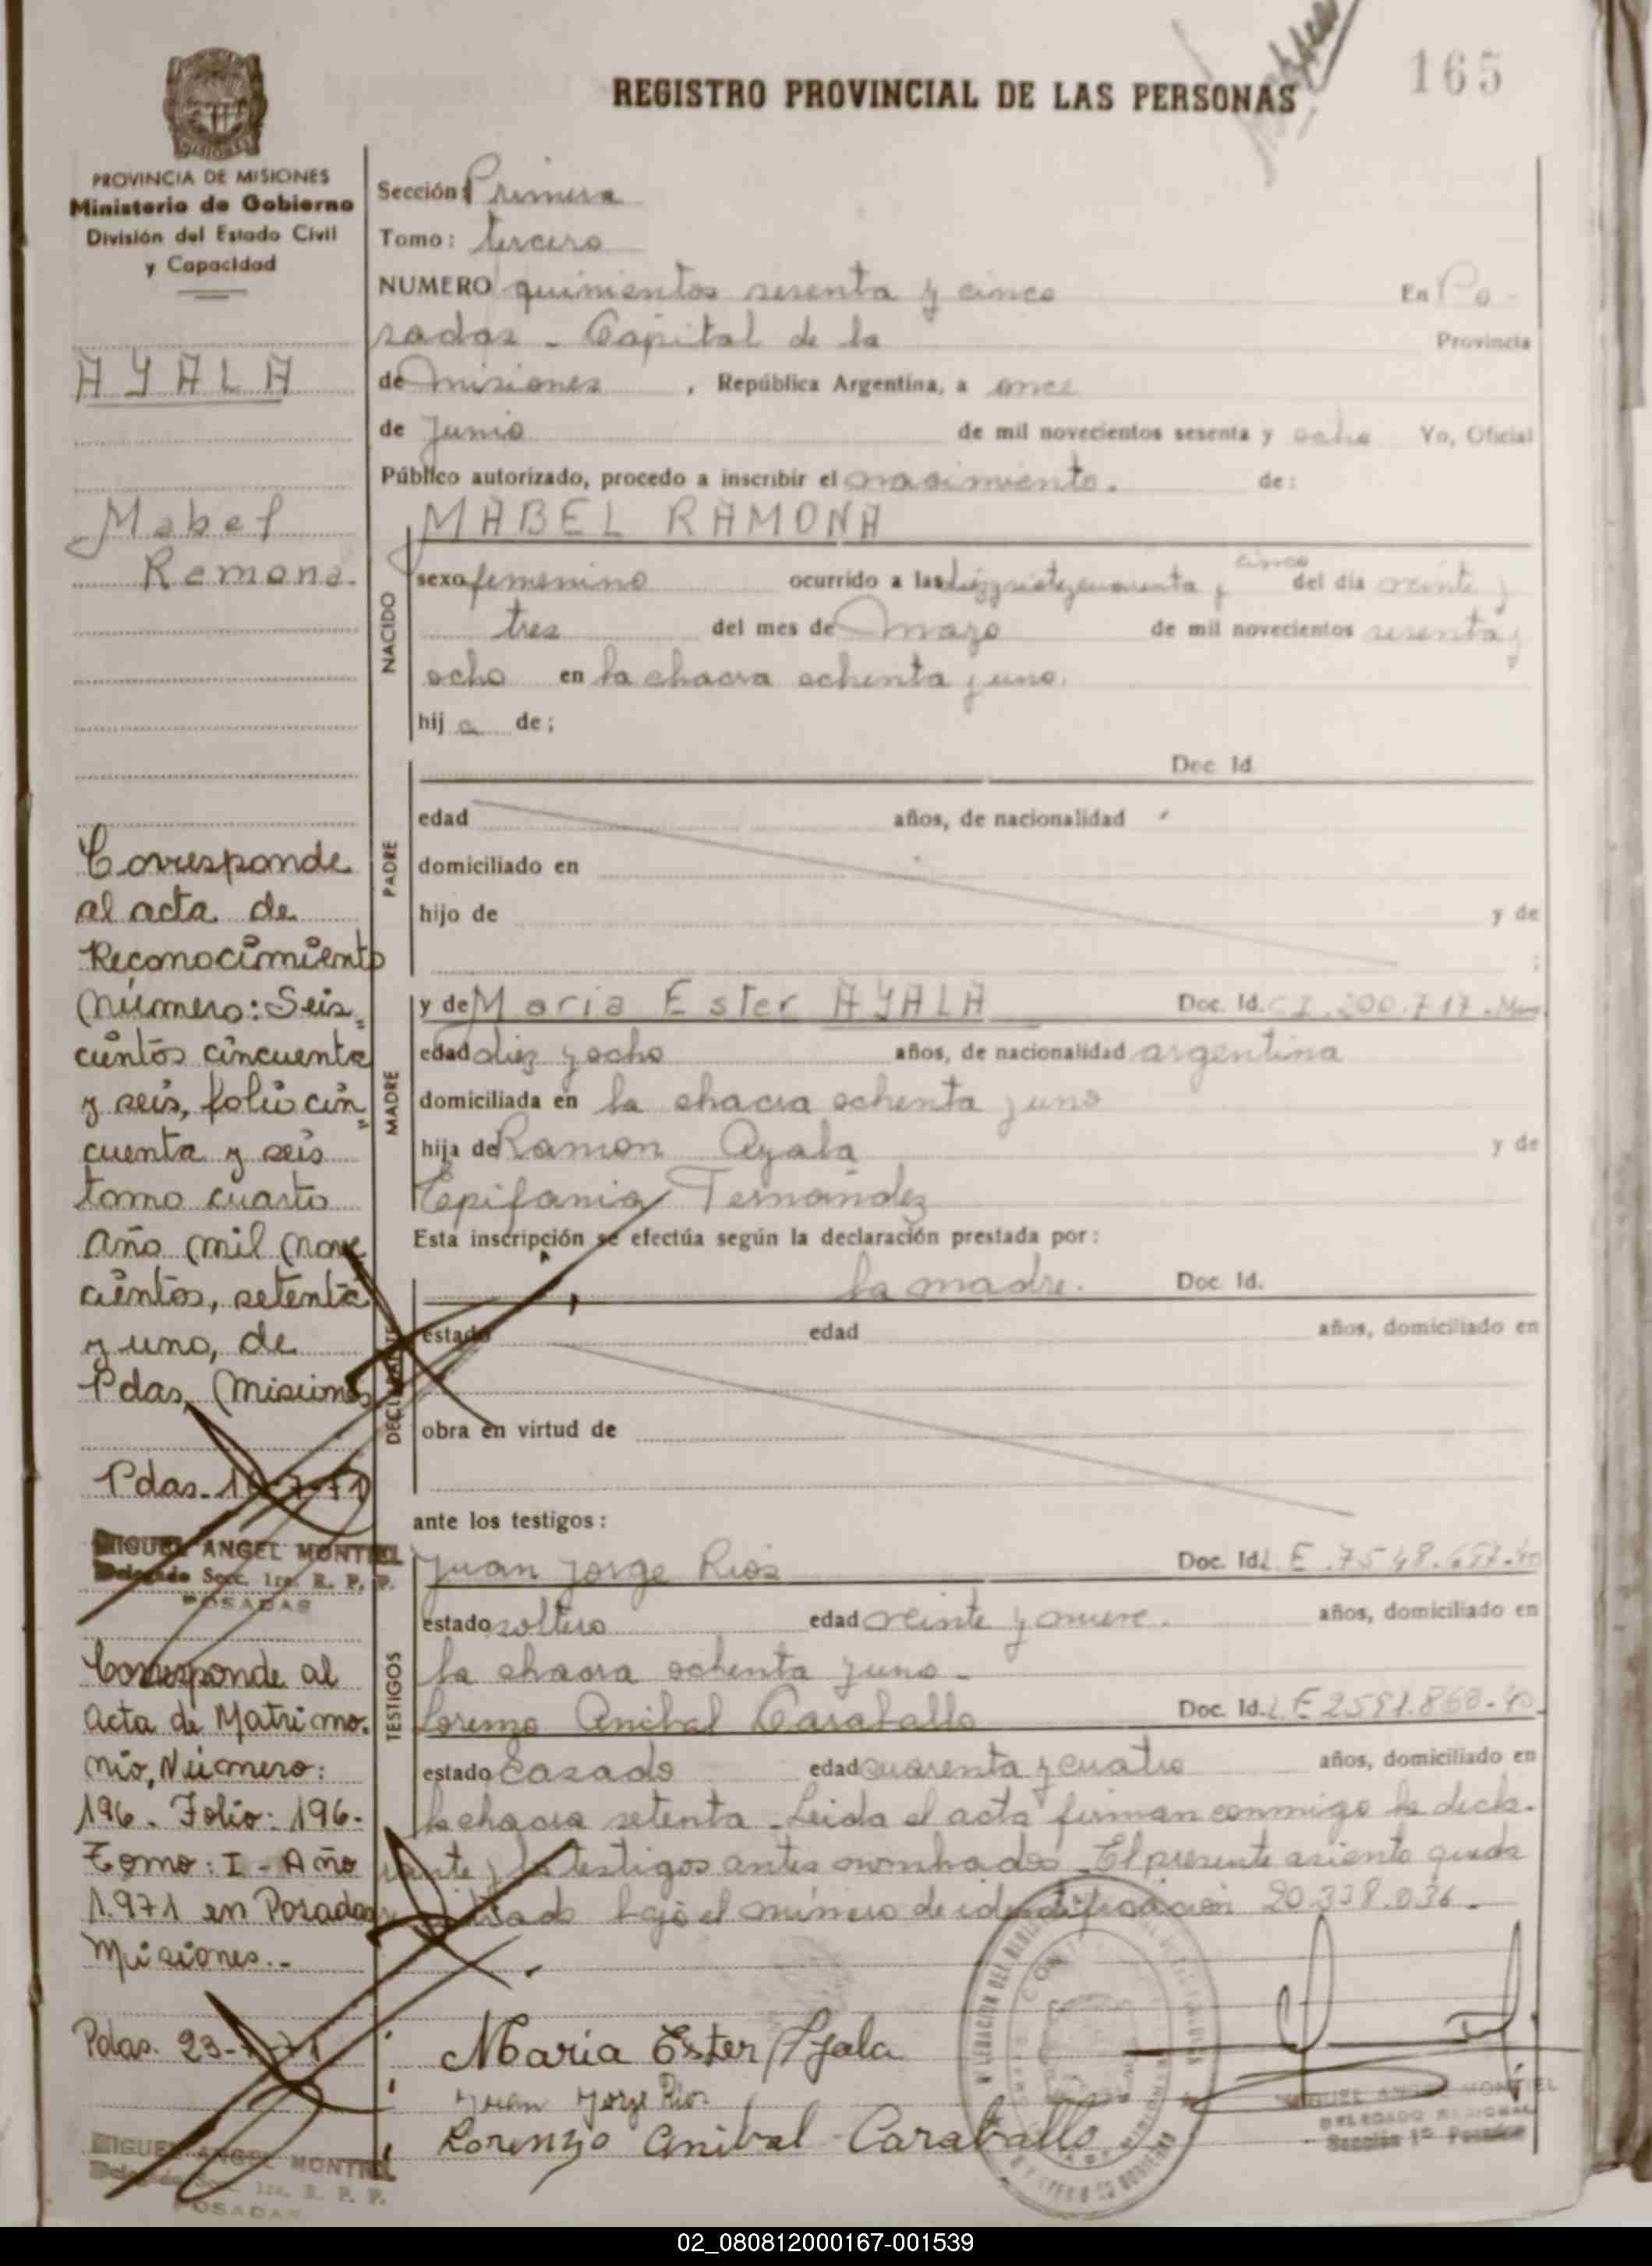 165
REGISTRO PROVINCIAL DE LAS PERSONAS
PROVINCIA DE MISIONES
Ministerio de Gobierno
División del Estado Civil
y Capacidad
AYALA
Mabel
Ramona.
Corresponde
al acta de
Reconocimiento
Número: Seis=
cientos cincuenta
y seis, folio cin=
cuenta y seis
tomo cuarto
Año mil nove
cientos, setenta
y uno, de
Pdas, Misiones
Pdas.
MIGUEL ANGEL MONTIEL
Delegado Secc. 1ra. R. P. P.
POSADAS
Corresponde al
Acta de Matrimo-
nio, Número:
196. Folio: 196-
Tomo: I - Año
1.971 en Posadas
Misiones.-
Pdas. 23-
MIGUEL ANGEL MONTIEL
Delegado Secc. 1ra. R. P. P.
POSADAS
Sección: Primera
Tomo: tercero
NUMERO quinientos sesenta y cinco En Po-
sadas - Capital de la Provincia
de Misiones, República Argentina, a once
de Junio de mil novecientos sesenta y ocho Yo, Oficial
Público autorizado, procedo a inscribir el nacimiento. de:
NACIDO
MABEL RAMONA
cinco
sexo femenino ocurrido a las diez y siete y cuarenta y del día veinte y
tres del mes de Marzo de mil novecientos sesenta y
ocho en la chacra ochenta y uno.
hija de;
PADRE
Doc. Id
edad años, de nacionalidad
domiciliado en
hijo de y de
;
MADRE
y de Maria Ester AYALA Doc. Id. C I. 200.717.
edad diez y ocho años, de nacionalidad argentina
domiciliada en la chacra ochenta y uno
hija de Ramon Ayala y de
Epifania Fernandez
Esta inscripción se efectúa según la declaración prestada por:
DECLARANTE
la madre. Doc. Id.
estado edad años, domiciliado en
obra en virtud de
ante los testigos:
TESTIGOS
Juan Jorge Rios Doc. Id. L E.
estado soltero edad veinte y nueve. años, domiciliado en
la chacra ochenta y uno -
Lorenzo Anibal Caraballo Doc. Id. L E
estado casado edad cuarenta y cuatro años, domiciliado en
la chacra setenta - Leida el acta firman conmigo la decla-
rante y los testigos antes nombrados - El presente asiento queda
bajo el número de identificación 20.338.036.-
Maria Ester Ayala
Juan Jorge Rios
Lorenzo Anibal Caraballo
MIGUEL ANGEL MONTIEL
DELEGADO REGIONAL
Sección 1ª Posadas
02_080812000167-001539